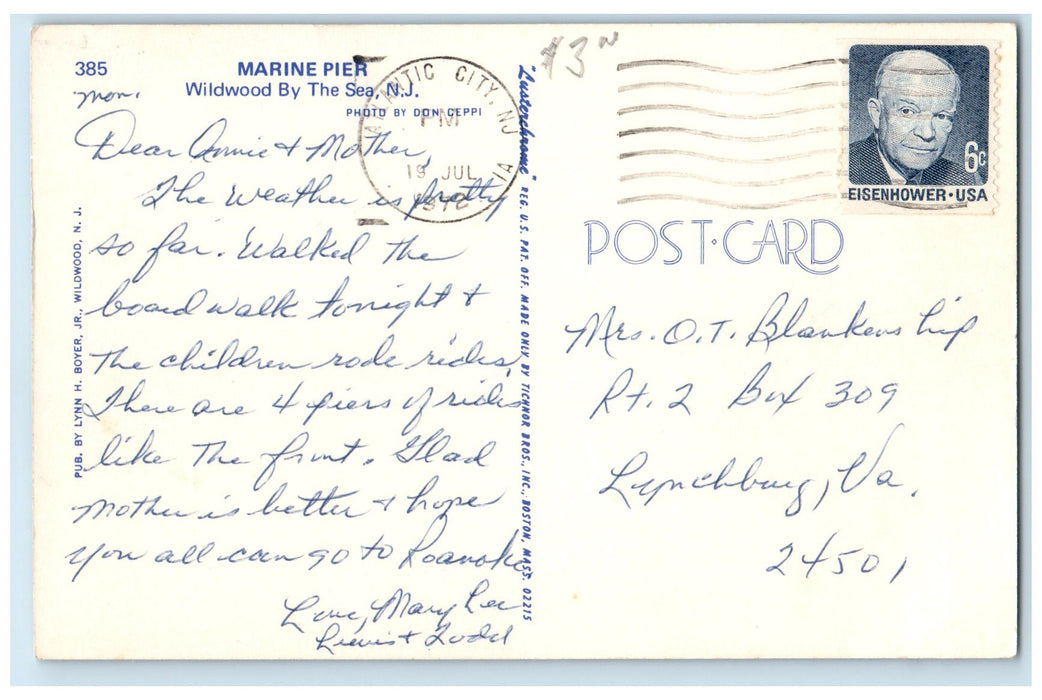 385
MARINE PIER
Wildwood By The Sea, N.J.
PHOTO BY DON CEPPI
Mon.
Dear Annie & Mother,
The weather is pretty
so far. Walked the
boardwalk tonight &
the children rode rides.
There are 4 piers of rides
like the front. Glad
Mother is better & hope
you all can go to Roanoke
Love, Mary Lee
Lewis & Todd
PUB. BY LYNN H. BOYER, JR., WILDWOOD, N. J.
"Lusterchrome" REG. U. S. PAT. OFF. MADE ONLY BY TICHNOR BROS., INC., BOSTON, MASS. 02215
ATLANTIC CITY, NJ
PM
19 JUL
EISENHOWER · USA
6c
POST·CARD
Mrs. O.T. Blankenship
Rt. 2 Box 309
Lynchburg, Va.
24501